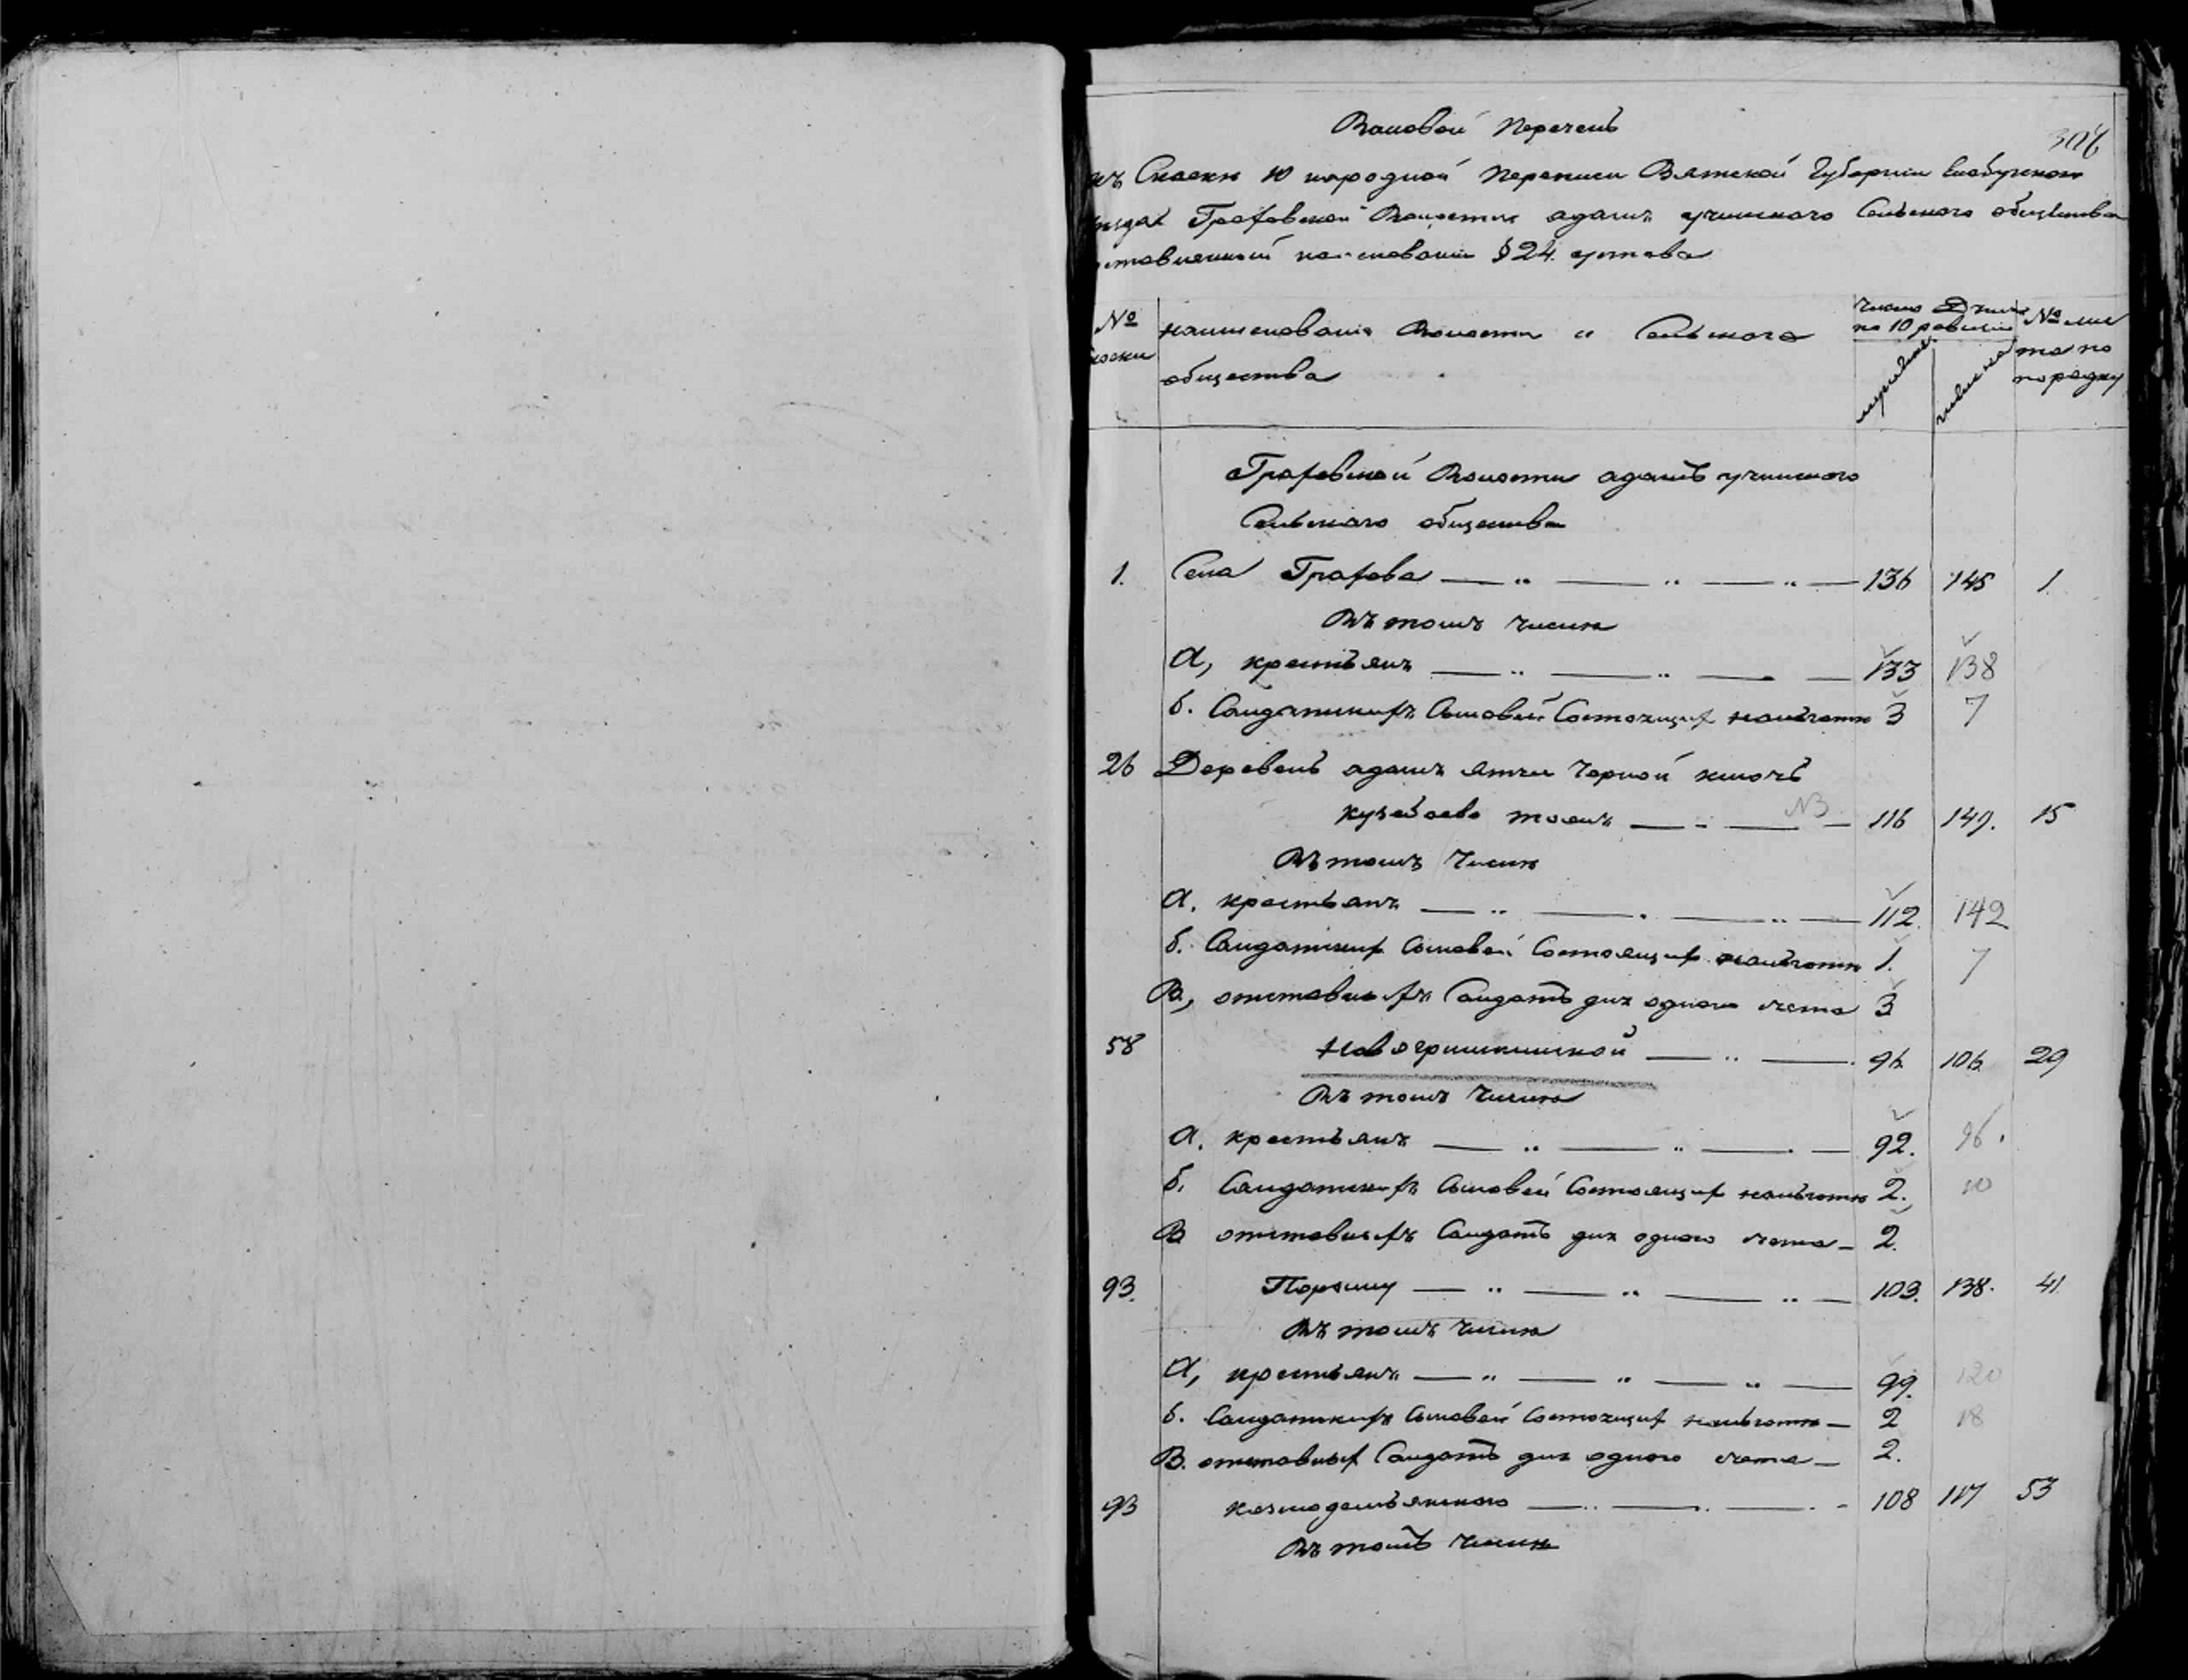 306
Валовой перечень
къ Сказкѣ 10 народной переписи Вятской Губерніи Елабужскаго
уѣзда Граховской Волости адамъ учинскаго Сельскаго общества
составленный на основаніи § 24. устава
№ сказки
наименованіе Волости и Сельскаго
общества
число Душъ
по 10 ревизіи
мужеска
женска
№ лис
та по
порядку
Граховской Волости адамъ учинскаго
Сельскаго общества
1. Села Грахова — „ — „ — „ — 136 145 1.
Въ томъ числѣ
А, крестьянъ — „ — „ — — 133 138
б. Солдатскихъ сыновей Состоящихъ на льготѣ 3 7
26 Деревень адамъ ятчи Черной ключь
кузебаево тожъ — „ — — 116 149. 15
NB
Въ томъ числѣ
А. крестьянъ — „ — „ — „ — 112. 142
б. Солдатскихъ сыновей Состоящихъ на льготѣ 1. 7
В, отставныхъ Солдатъ для одного счета 3
58 Новогришкинской — „ — 96. 106. 29
Въ томъ числѣ
А. крестьянъ — „ — „ — — 92. 96.
б. Солдатскихъ сыновей Состоящихъ на льготѣ 2. 10
В отставныхъ Солдатъ для одного счета — 2.
93. Поршуу — „ — „ — „ — 103. 138. 41.
Въ томъ числѣ
А, крестьянъ — „ — „ — „ — 99. 120
б. Солдатскихъ сыновей Состоящихъ на льготѣ — 2 18
В. отставныхъ Солдатъ для одного счета — 2.
93 козмодемьянского — „ — „ — - 108 117 53
Въ томъ числѣ